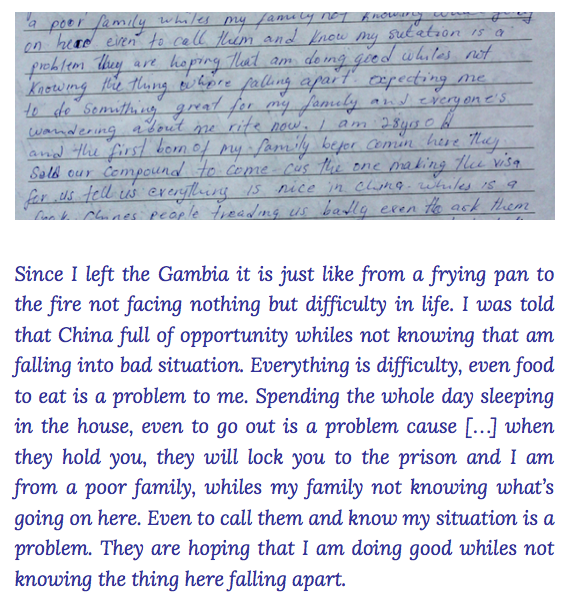 a poor family whiles my family not knowing
on here even to call them and know my sutation is a
problem they are hoping that am doing good whiles not
knowing the thing where falling apart expecting me
to do something great for my family and everyone's
wandering about me rite now. I am 28yrs old
and the first born of my family befor comin here they
Sold our compound to come cus the one making the visa
for us tell us everything is nice in china. whiles is a
Chines people treading us badly even to ask them
Since I left the Gambia it is just like from a frying pan to
the fire not facing nothing but difficulty in life. I was told
that China full of opportunity whiles not knowing that am
falling into bad situation. Everything is difficulty, even food
to eat is a problem to me. Spending the whole day sleeping
in the house, even to go out is a problem cause […] when
they hold you, they will lock you to the prison and I am
from a poor family, whiles my family not knowing what's
going on here. Even to call them and know my situation is a
problem. They are hoping that I am doing good whiles not
knowing the thing here falling apart.